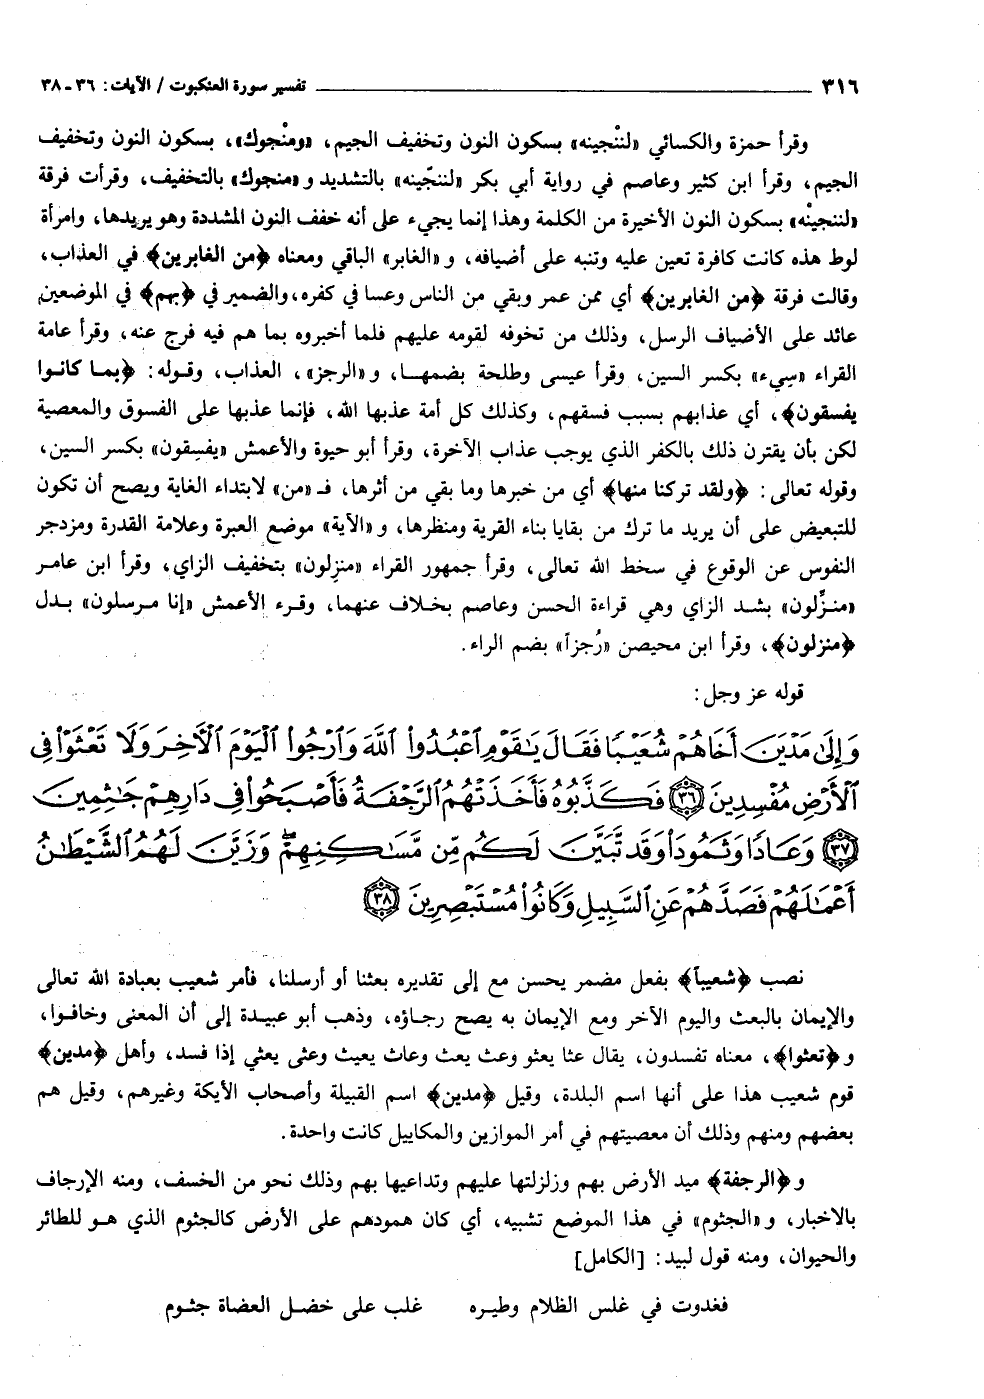 ٣١٦ ــــــــــــــــــــ تفسير سورة العنكبوت / الآيات: ٣٦ ـ ٣٨
وقرأ حمزة والكسائي «لننْجينه» بسكون النون وتخفيف الجيم، «ومنْجوك»، بسكون النون وتخفيف
الجيم، وقرأ ابن كثير وعاصم في رواية أبي بكر «لننجّينه» بالتشديد و«منجوك» بالتخفيف، وقرأت فرقة
«لننجينْه» بسكون النون الأخيرة من الكلمة وهذا إنما يجيء على أنه خفف النون المشددة وهو يريدها، وامرأة
لوط هذه كانت كافرة تعين عليه وتنبه على أضيافه، و«الغابر» الباقي ومعناه ﴿من الغابرين﴾ في العذاب،
وقالت فرقة ﴿من الغابرين﴾ أي ممن عمر وبقي من الناس وعسا في كفره، والضمير في ﴿بهم﴾ في الموضعين
عائد على الأضياف الرسل، وذلك من تخوفه لقومه عليهم فلما أخبروه بما هم فيه فرج عنه، وقرأ عامة
القراء «سِيء» بكسر السين، وقرأ عيسى وطلحة بضمها، و«الرجز»، العذاب، وقوله: ﴿بما كانوا
يفسقون﴾، أي عذابهم بسبب فسقهم، وكذلك كل أمة عذبها الله، فإنما عذبها على الفسوق والمعصية
لكن بأن يقترن ذلك بالكفر الذي يوجب عذاب الآخرة، وقرأ أبو حيوة والأعمش «يفسِقون» بكسر السين،
وقوله تعالى: ﴿ولقد تركنا منها﴾ أي من خبرها وما بقي من أثرها، فـ«من» لابتداء الغاية ويصح أن تكون
للتبعيض على أن يريد ما ترك من بقايا بناء القرية ومنظرها، و«الآية» موضع العبرة وعلامة القدرة ومزدجر
النفوس عن الوقوع في سخط الله تعالى، وقرأ جمهور القراء «منزِلون» بتخفيف الزاي، وقرأ ابن عامر
«منزِّلون» بشد الزاي وهي قراءة الحسن وعاصم بخلاف عنهما، وقرء الأعمش «إنا مرسلون» بدل
﴿منزلون﴾، وقرأ ابن محيصن «رُجزاً» بضم الراء.
قوله عز وجل:
وَإِلَىٰ مَدْيَنَ أَخَاهُمْ شُعَيْبًا فَقَالَ يَٰقَوْمِ ٱعْبُدُوا۟ ٱللَّهَ وَٱرْجُوا۟ ٱلْيَوْمَ ٱلْءَاخِرَ وَلَا تَعْثَوْا۟ فِى
ٱلْأَرْضِ مُفْسِدِينَ ٣٦ فَكَذَّبُوهُ فَأَخَذَتْهُمُ ٱلرَّجْفَةُ فَأَصْبَحُوا۟ فِى دَارِهِمْ جَٰثِمِينَ
٣٧ وَعَادًا وَثَمُودَا۟ وَقَد تَّبَيَّنَ لَكُم مِّن مَّسَٰكِنِهِمْ ۖ وَزَيَّنَ لَهُمُ ٱلشَّيْطَٰنُ
أَعْمَٰلَهُمْ فَصَدَّهُمْ عَنِ ٱلسَّبِيلِ وَكَانُوا۟ مُسْتَبْصِرِينَ ٣٨
نصب ﴿شعيباً﴾ بفعل مضمر يحسن مع إلى تقديره بعثنا أو أرسلنا، فأمر شعيب بعبادة الله تعالى
والإيمان بالبعث واليوم الآخر ومع الإيمان به يصح رجاؤه، وذهب أبو عبيدة إلى أن المعنى وخافوا،
و﴿تعثوا﴾، معناه تفسدون، يقال عثا يعثو وعث يعث وعاث يعيث وعثى يعثي إذا فسد، وأهل ﴿مدين﴾
قوم شعيب هذا على أنها اسم البلدة، وقيل ﴿مدين﴾ اسم القبيلة وأصحاب الأيكة وغيرهم، وقيل هم
بعضهم ومنهم وذلك أن معصيتهم في أمر الموازين والمكاييل كانت واحدة.
و﴿الرجفة﴾ ميد الأرض بهم وزلزلتها عليهم وتداعيها بهم وذلك نحو من الخسف، ومنه الإرجاف
بالاخبار، و«الجثوم» في هذا الموضع تشبيه، أي كان همودهم على الأرض كالجثوم الذي هو للطائر
والحيوان، ومنه قول لبيد: [الكامل]
فغدوت في غلس الظلام وطيره     غلب على خضل العضاة جثوم